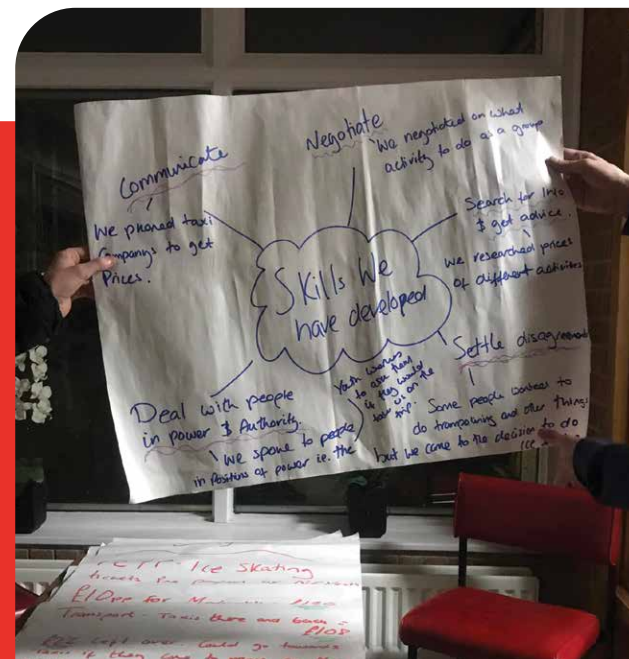 Skills We
have developed
Communicate
We phoned taxi
Companys to get
Prices.
Negotiate
We negotiated on what
activity to do as a group
Search for Info
& get advice.
We researched prices
of different activities
Settle disagreement
Some people wanted to
do trampolining and other things
but we came to the decision to do
Ice
Deal with people
in power & Authority.
We spoke to people
in positions of power ie. the
Youth workers
to ask them
if they would
take us on the
trip.
Ice Skating
tickets
£10pp for
Transport - Taxis there and back =
£108
kept over. Could go towards
taxis if they